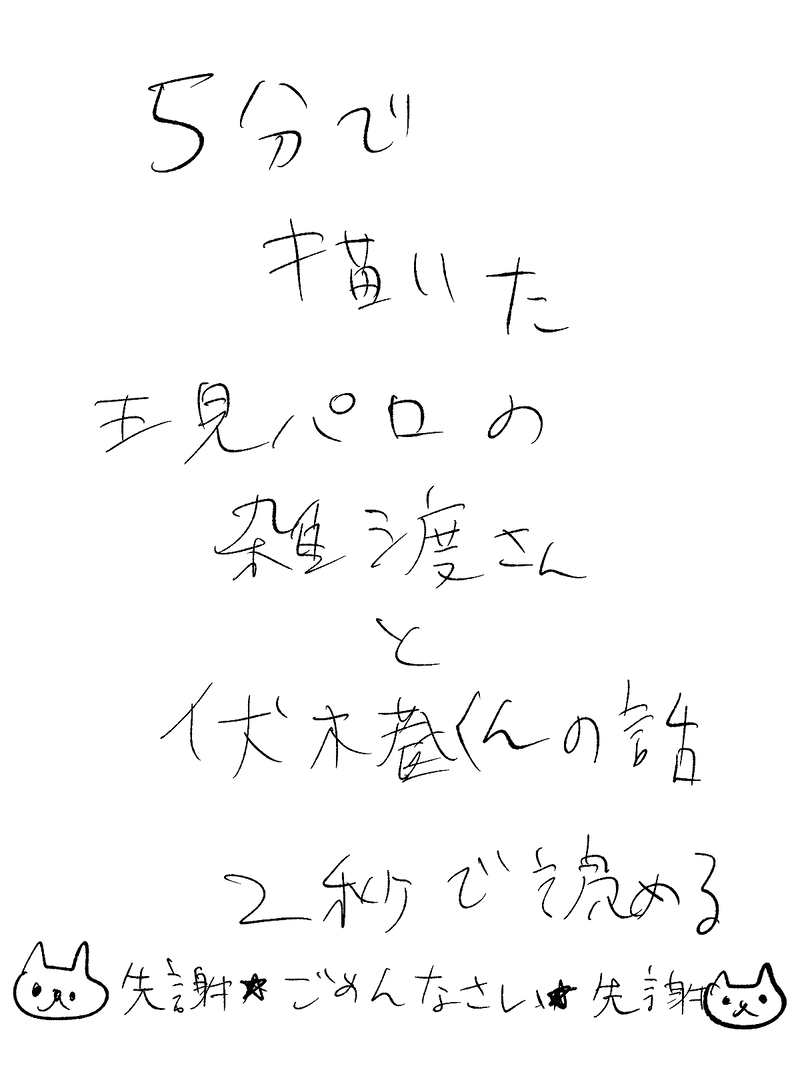 5分で
描いた
現パロの
雑渡さん
と
伏木蔵くんの話
2秒で読める
先謝★ごめんなさい★先謝